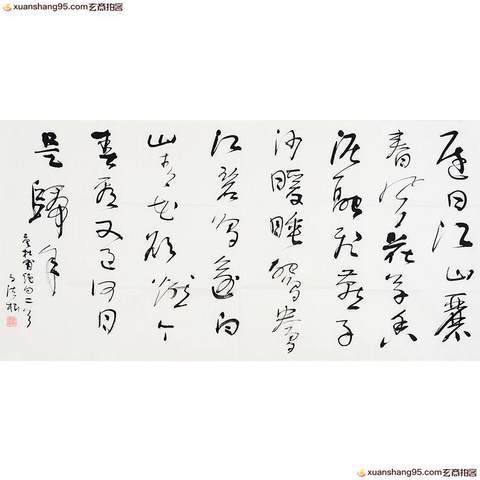 xuanshang95.com玄商拍客
遲日江山麗
春風花草香
泥融飛燕子
沙暖睡鴛鴦
江碧鳥逾白
山青花欲燃今
春看又過何日
是歸年
杜甫絕句二首
xuanshang95.com玄商拍客